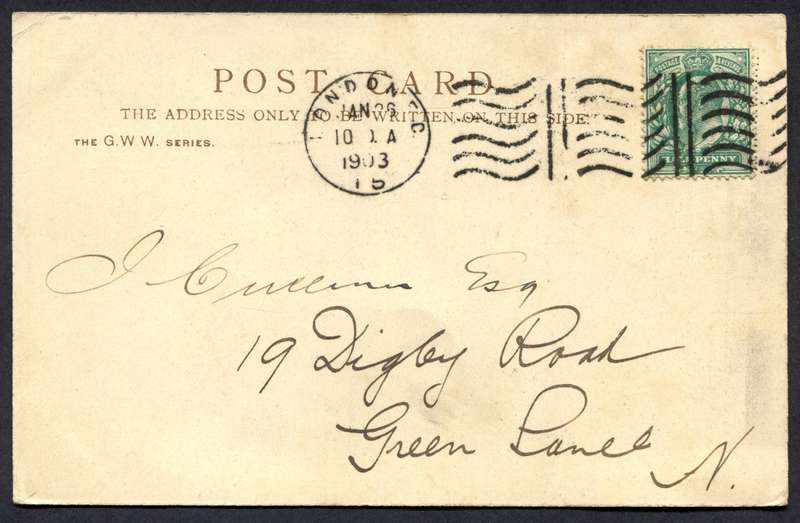 POST CARD
THE ADDRESS ONLY TO BE WRITTEN ON THIS SIDE.
THE G.W.W. SERIES.
LONDON
JAN 26
10
A
1903
15
POSTAGE & REVENUE
HALFPENNY
J Cullum Esq
19 Digby Road
Green Lanes
N.